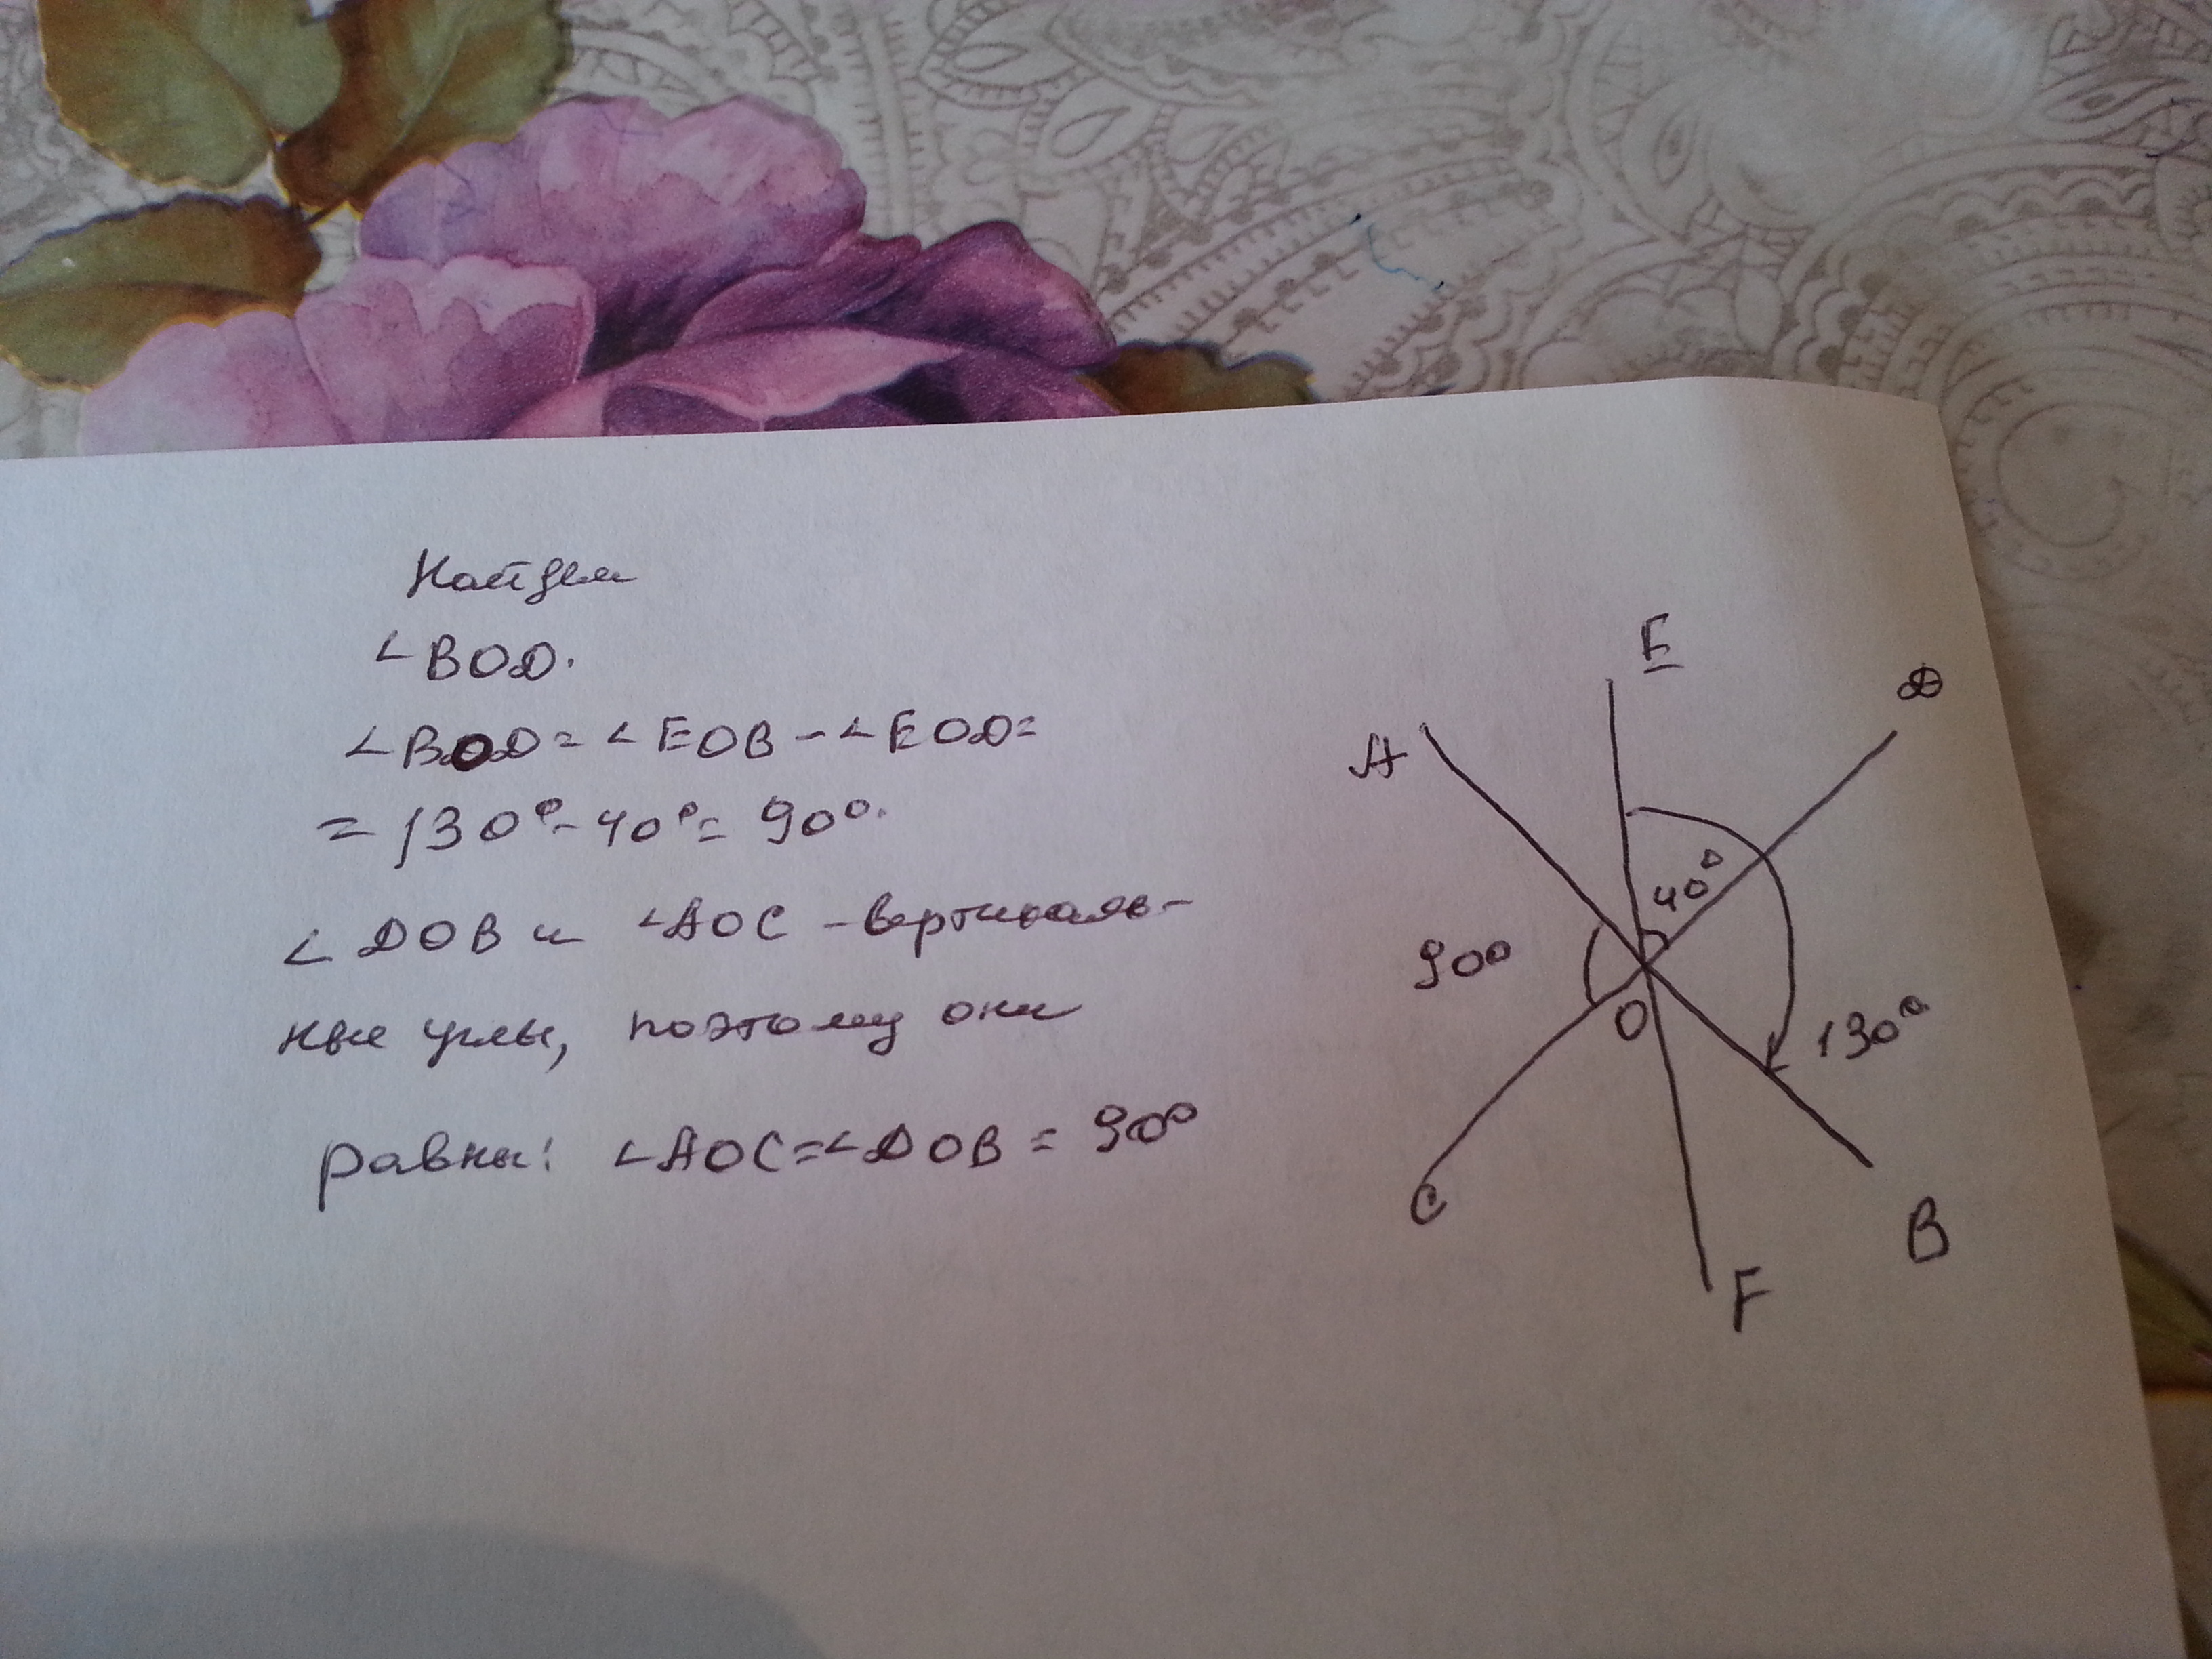 Найдем
∠BOD.
∠BOD = ∠EOB - ∠EOD =
= 130° - 40° = 90°.
∠DOB и ∠AOC - вертикаль-
ные углы, поэтому они
равны: ∠AOC = ∠DOB = 90°
E
D
A
40°
90°
O
130°
C
B
F